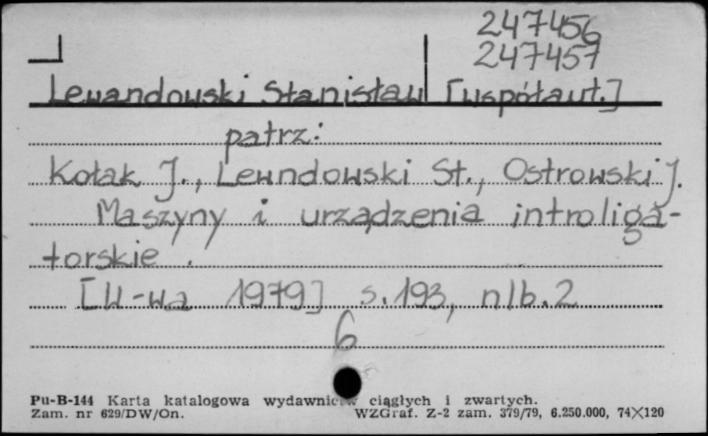 247456
247457
Lewandowski Stanisław [współaut.]
patrz:
Kołak J., Lewndowski St., Ostrowski J.
Maszyny i urządzenia introliga-
torskie.
[W-wa 1979] s. 193, nlb. 2
6
Pu-B-144 Karta katalogowa wydawnictw ciągłych i zwartych.
Zam. nr 629/DW/On. WZGraf. Z-2 zam. 379/79, 6.250.000, 74×120